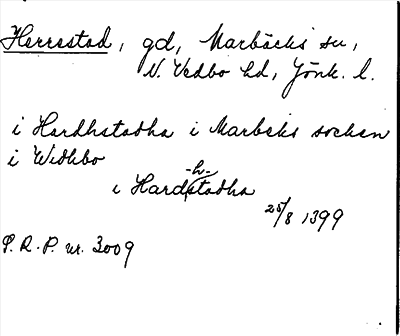 Herrestad, gd, Marbäcks sn,
N. Vedbo hd, Jönk. l.
i Hardhstadha i Marbeks socken
i Widhbo
i Hard-h-stadha
25/8 1399
S. R. P. nr. 3009